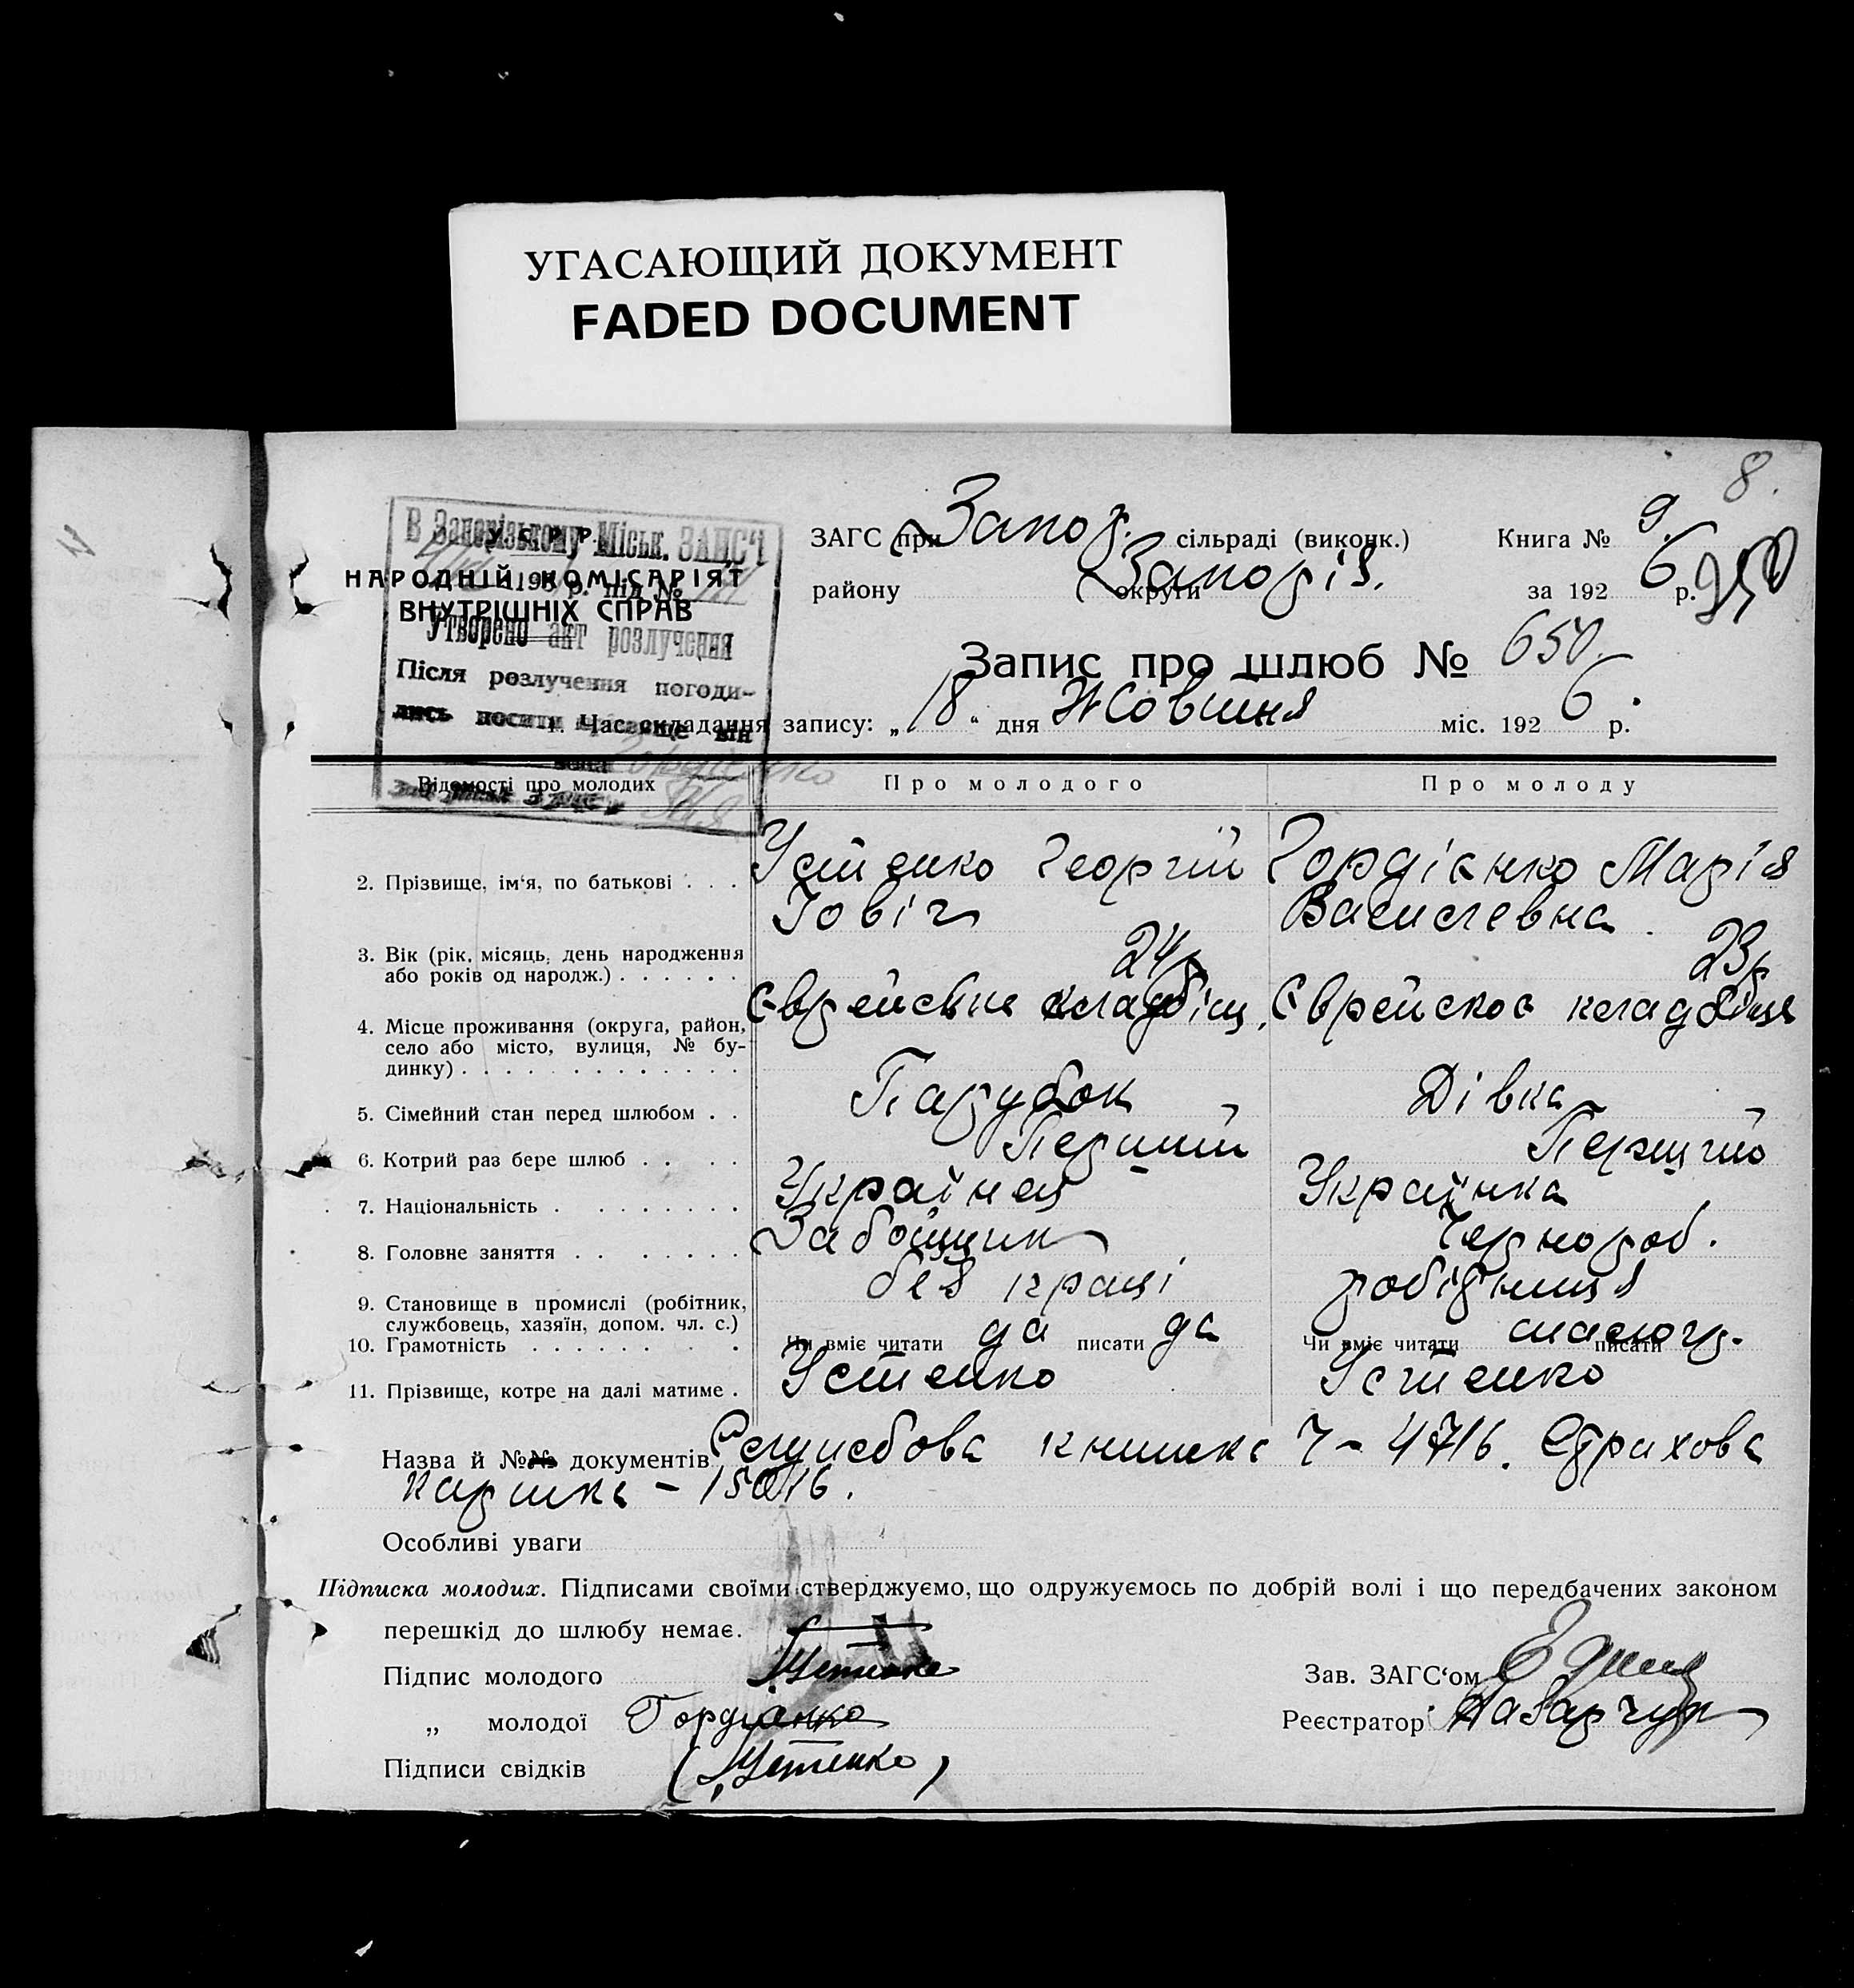 УГАСАЮЩИЙ ДОКУМЕНТ
FADED DOCUMENT
8.
В Запорізькому Міськ. ЗАПСЧ
193 р. під №
Утворено акт розлучення
Після розлучення погоди-
лись носити прізвище він
вона
У С Р Р
НАРОДНІЙ КОМІСАРІЯТ
ВНУТРІШНІХ СПРАВ
ЗАГС при Запор. сільраді (виконк.) Книга № 9.
району округи Запоріз. за 192 6 р. 250
Запис про шлюб № 650.
1. Час складання запису: „18“ дня Жовтня міс. 192 6 р.
Відомості про молодих Про молодого Про молоду
2. Прізвище, ім‘я, по батькові . . . Устенко Георгій Гордієнко Марія
Іовіч Василевна.
3. Вік (рік, місяць, день народження 24 р 23 р
або років од народж.) . . . . . .
4. Місце проживання (округа, район, Єврейське кладбіщ. Єврейское кладбіще
село або місто, вулиця, № бу-
динку) . . . . . . . . . . . . .
5. Сімейний стан перед шлюбом . . Парубок Дівка
6. Котрий раз бере шлюб . . . . Перший Перший
7. Національність . . . . . . . . Українец Українка
8. Головне заняття . . . . . . . Забойщик Чернороб.
9. Становище в промислі (робітник, без праці робітниця
службовець, хазяїн, допом. чл. с.)
10. Грамотність . . . . . . . . Чи вміє читати да писати да Чи вміє читати малогр. писати
11. Прізвище, котре на далі матиме . Устенко Устенко
Назва й №№ документів Служебова книжка Ч- 4716. Страхова
картка - 15016.
Особливі уваги
Підписка молодих. Підписами своїми стверджуємо, що одружуємось по добрій волі і що передбачених законом
перешкід до шлюбу немає.
Підпис молодого Устенко Зав. ЗАГС‘ом
„ молодої Гордіенко Реєстратор Назарчук
Підписи свідків (Устенко)